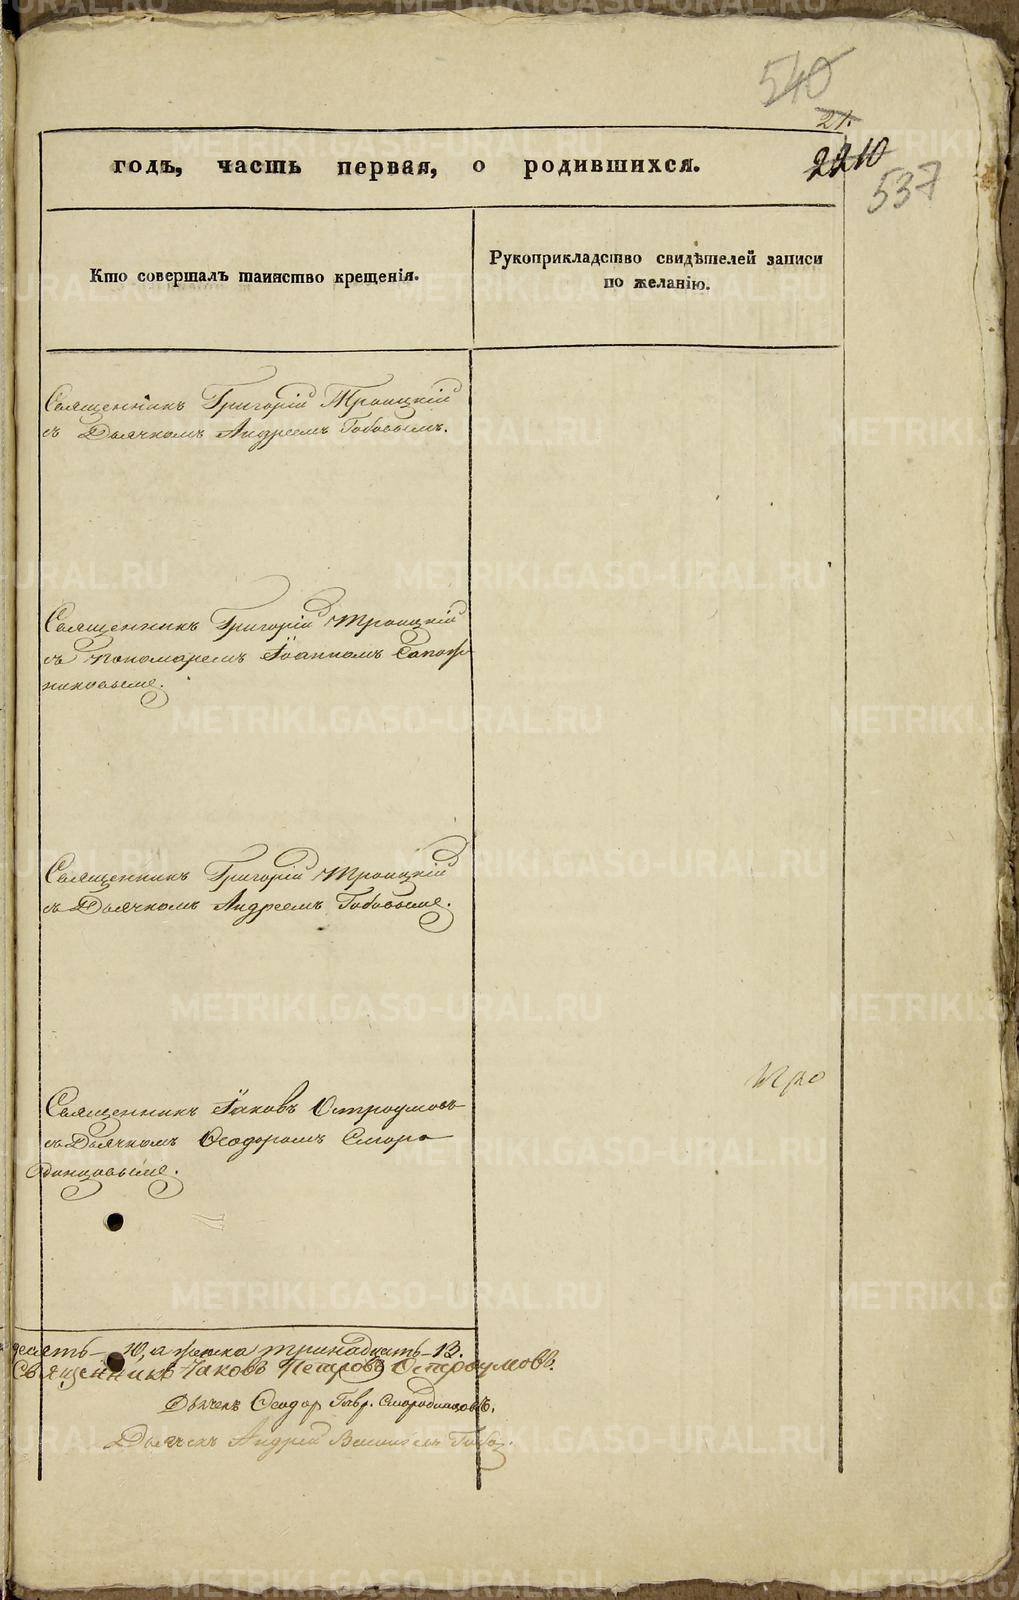 540
21.
годъ, часть первая, о родившихся.
2210
537
Кто совершалъ таинство крещенія.
Рукоприкладство свидѣтелей записи
по желанію.
Священникъ Григорій Троицкій
съ Дьячкомъ Андреемъ Бобовымъ.
Священникъ Григорій Троицкій
съ Пономаремъ Іоанномъ Сапож
никовымъ.
Священникъ Григорій Троицкій
съ Дьячкомъ Андреемъ Бобовымъ.
Священникъ Іаковъ Остроумовъ
съ Дьячкомъ Ѳеодоромъ Сморо
динцовымъ.
десять – 10, а женска тринадцать – 13.
Священникъ Іаковъ Петровъ Остроумовъ.
Дьячекъ Ѳеодор Гавр. Смородинцовъ.
Дьячекъ Андрей
METRIKI.GASO-URAL.RU